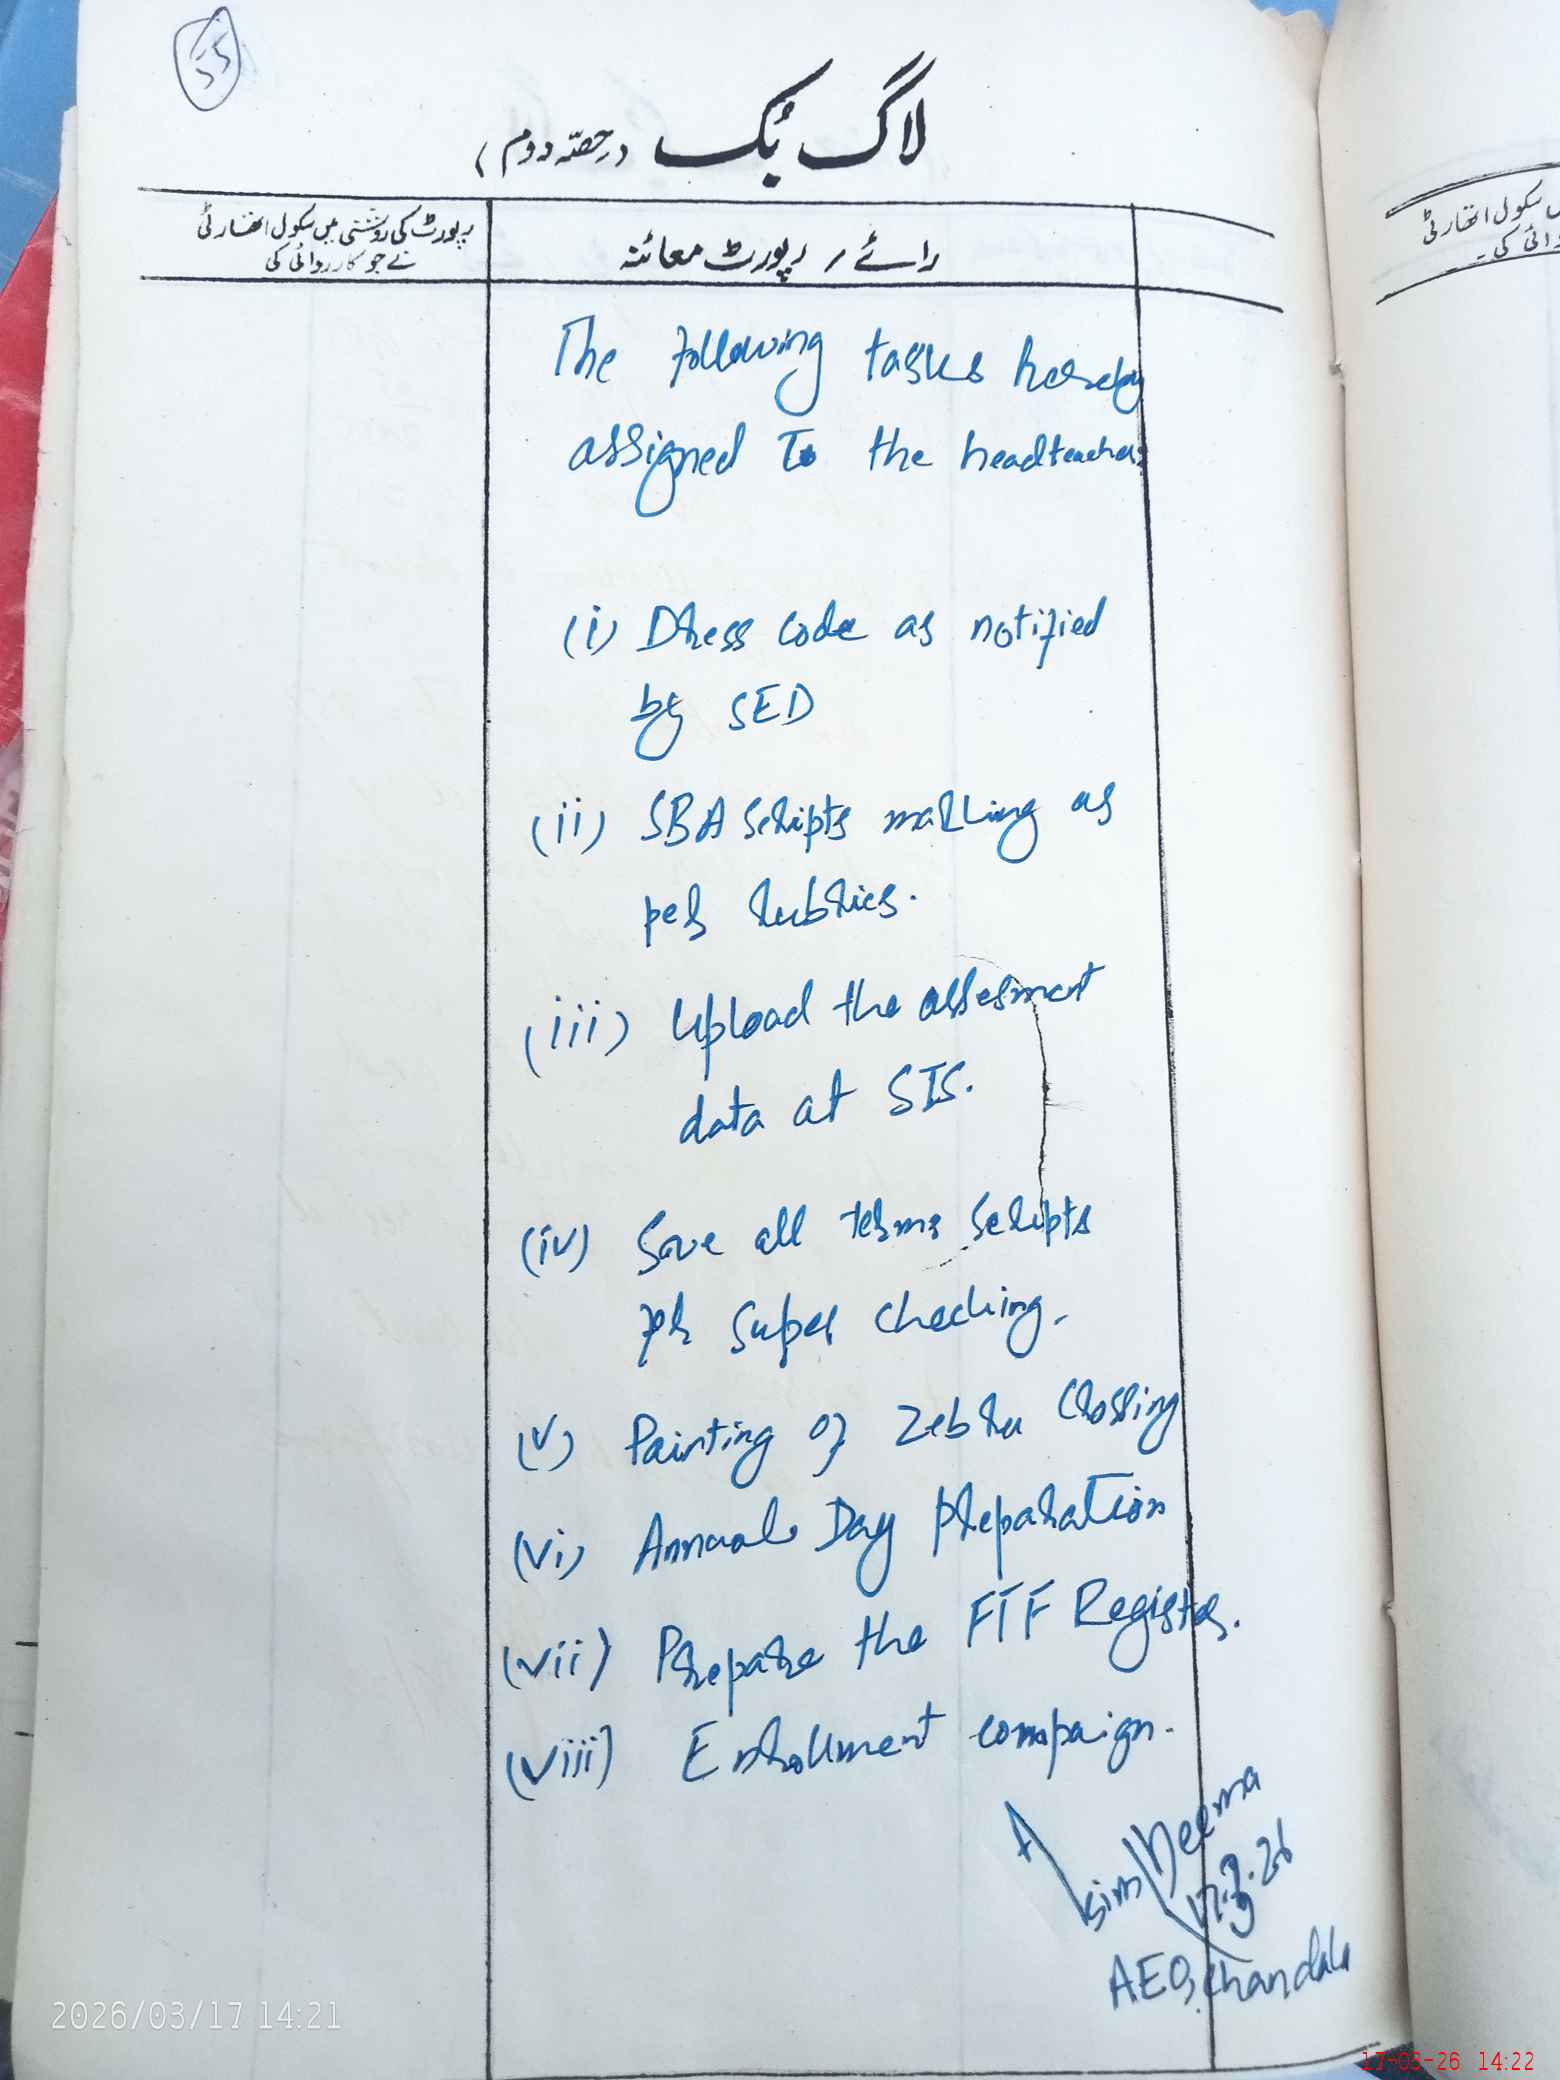 55
لاگ بُک (حصّہ دوم)
رائے / رپورٹ معائنہ
رپورٹ کی روشنی میں سکول اتھارٹی
نے جو کارروائی کی
The following tasks hereby
assigned to the headteachers
(i) Dress code as notified
by SED
(ii) SBA Scripts marking as
per rubrics.
(iii) Upload the assesment
data at SIS.
(iv) Save all terms scripts
for super checking.
(v) Painting of Zebra Crossing
(vi) Annual Day preparation
(vii) Prepare the FTF Register.
(viii) Enrollment compaign.
Asim
17.3.26
AEO, Chandala
سکول اتھارٹی
2026/03/17 14:21
17-03-26 14:22